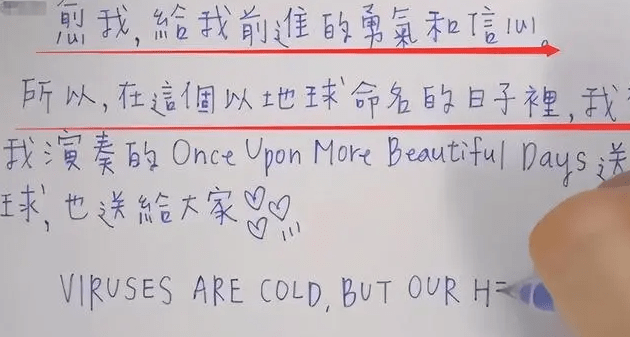 愈我,給我前進的勇氣和信心。
所以,在這個以地球命名的日子裡,我
我演奏的 Once Upon More Beautiful Days 送
球,也送給大家♡♡♡
VIRUSES ARE COLD, BUT OUR H